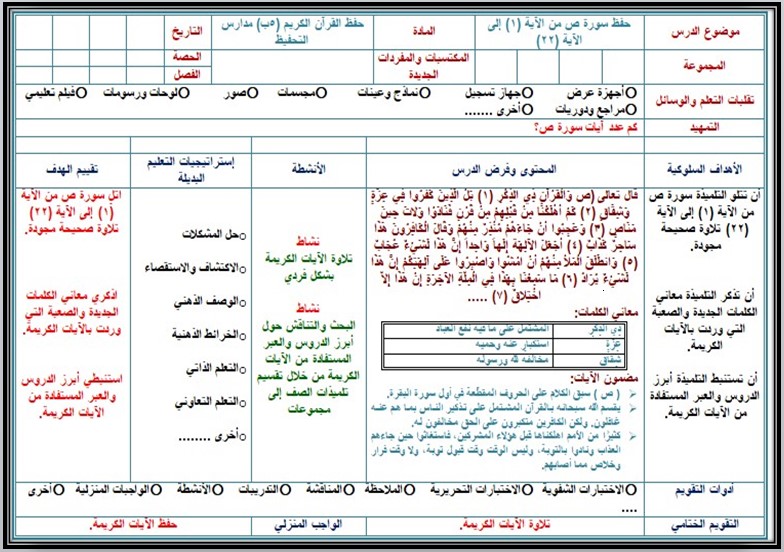 موضوع الدرس
حفظ سورة ص من الآية (١) إلى
الآية (٢٢)
المادة
حفظ القرآن الكريم (٥ب) مدارس
التحفيظ
التاريخ
المجموعة
المكتسبات والمفردات
الجديدة
الحصة
الفصل
تقليات التعلم والوسائل
Oأجهزة عرض Oجهاز تسجيل Oنماذج وعينات Oمجسمات Oصور Oلوحات ورسومات Oفيلم تعليمي
Oمراجع ودوريات Oأخرى .......
التمهيد
كم عدد آيات سورة ص؟
الأهداف السلوكية
المحتوى وفرض الدرس
الأنشطة
إستراتيجيات التعليم
البديلة
تقييم الهدف
أن تتلو التلميذة سورة ص
من الآية (١) إلى الآية
(٢٢) تلاوة صحيحة
مجودة.
أن تذكر التلميذة معاني
الكلمات الجديدة والصعبة
التي وردت بالآيات
الكريمة.
أن تستنبط التلميذة أبرز
الدروس والعبر المستفادة
من الآيات الكريمة.
قال تعالى (ص وَالْقُرْآنِ ذِي الذِّكْرِ (١) بَلِ الَّذِينَ كَفَرُوا فِي عِزَّةٍ
وَشِقَاقٍ (٢) كَمْ أَهْلَكْنَا مِنْ قَبْلِهِمْ مِنْ قَرْنٍ فَنَادَوْا وَلاتَ حِينَ
مَنَاصٍ (٣) وَعَجِبُوا أَنْ جَاءَهُمْ مُنْذِرٌ مِنْهُمْ وَقَالَ الْكَافِرُونَ هَذَا
سَاحِرٌ كَذَّابٌ (٤) أَجَعَلَ الآلِهَةَ إِلَهاً وَاحِداً إِنَّ هَذَا لَشَيْءٌ عُجَابٌ
(٥) وَانطَلَقَ الْمَلأُ مِنْهُمْ أَنْ امْشُوا وَاصْبِرُوا عَلَى آلِهَتِكُمْ إِنَّ هَذَا
لَشَيْءٌ يُرَادُ (٦) مَا سَمِعْنَا بِهَذَا فِي الْمِلَّةِ الآخِرَةِ إِنْ هَذَا إِلاَّ
اخْتِلاقٌ (٧) .....
معاني الكلمات:
ذِي الذِّكْرِ المشتمل على ما فيه نفع العباد
عِزَّةٍ استكبار عنه وحميه
شِقَاقٍ مخالفه لله ورسوله
مضمون الآيات:
( ص ) سبق الكلام على الحروف المقطّعة في أول سورة البقرة.
يقسم الله سبحانه بالقرآن المشتمل على تذكير الناس بما هم عنه
غافلون. ولكن الكافرين متكبرون على الحق مخالفون له.
كثيرًا من الأمم أهلكناها قبل هؤلاء المشركين، فاستغاثوا حين جاءهم
العذاب ونادوا بالتوبة، وليس الوقت وقت قبول توبة، ولا وقت فرار
وخلاص مما أصابهم.
نشاط
تلاوة الآيات الكريمة
بشكل فردي
نشاط
البحث والتناقش حول
أبرز الدروس والعبر
المستفادة من الآيات
الكريمة من خلال تقسيم
تلميذات الصف إلى
مجموعات
oحل المشكلات
oالاكتشاف والاستقصاء
oالوصف الذهني
oالخرائط الذهنية
oالتعلم الذاتي
oالتعلم التعاوني
oأخرى ........
اتل سورة ص من الآية
(١) إلى الآية (٢٢)
تلاوة صحيحة مجودة.
اذكري معاني الكلمات
الجديدة والصعبة التي
وردت بالآيات الكريمة.
استنبطي أبرز الدروس
والعبر المستفادة من
الآيات الكريمة.
أدوات التقويم
Oالاختبارات الشفوية Oالاختبارات التحريرية Oالملاحظة Oالمناقشة Oالتدريبات Oالأنشطة Oالواجبات المنزلية Oأخرى
....
التقويم الختامي
تلاوة الآيات الكريمة.
الواجب المنزلي
حفظ الآيات الكريمة.